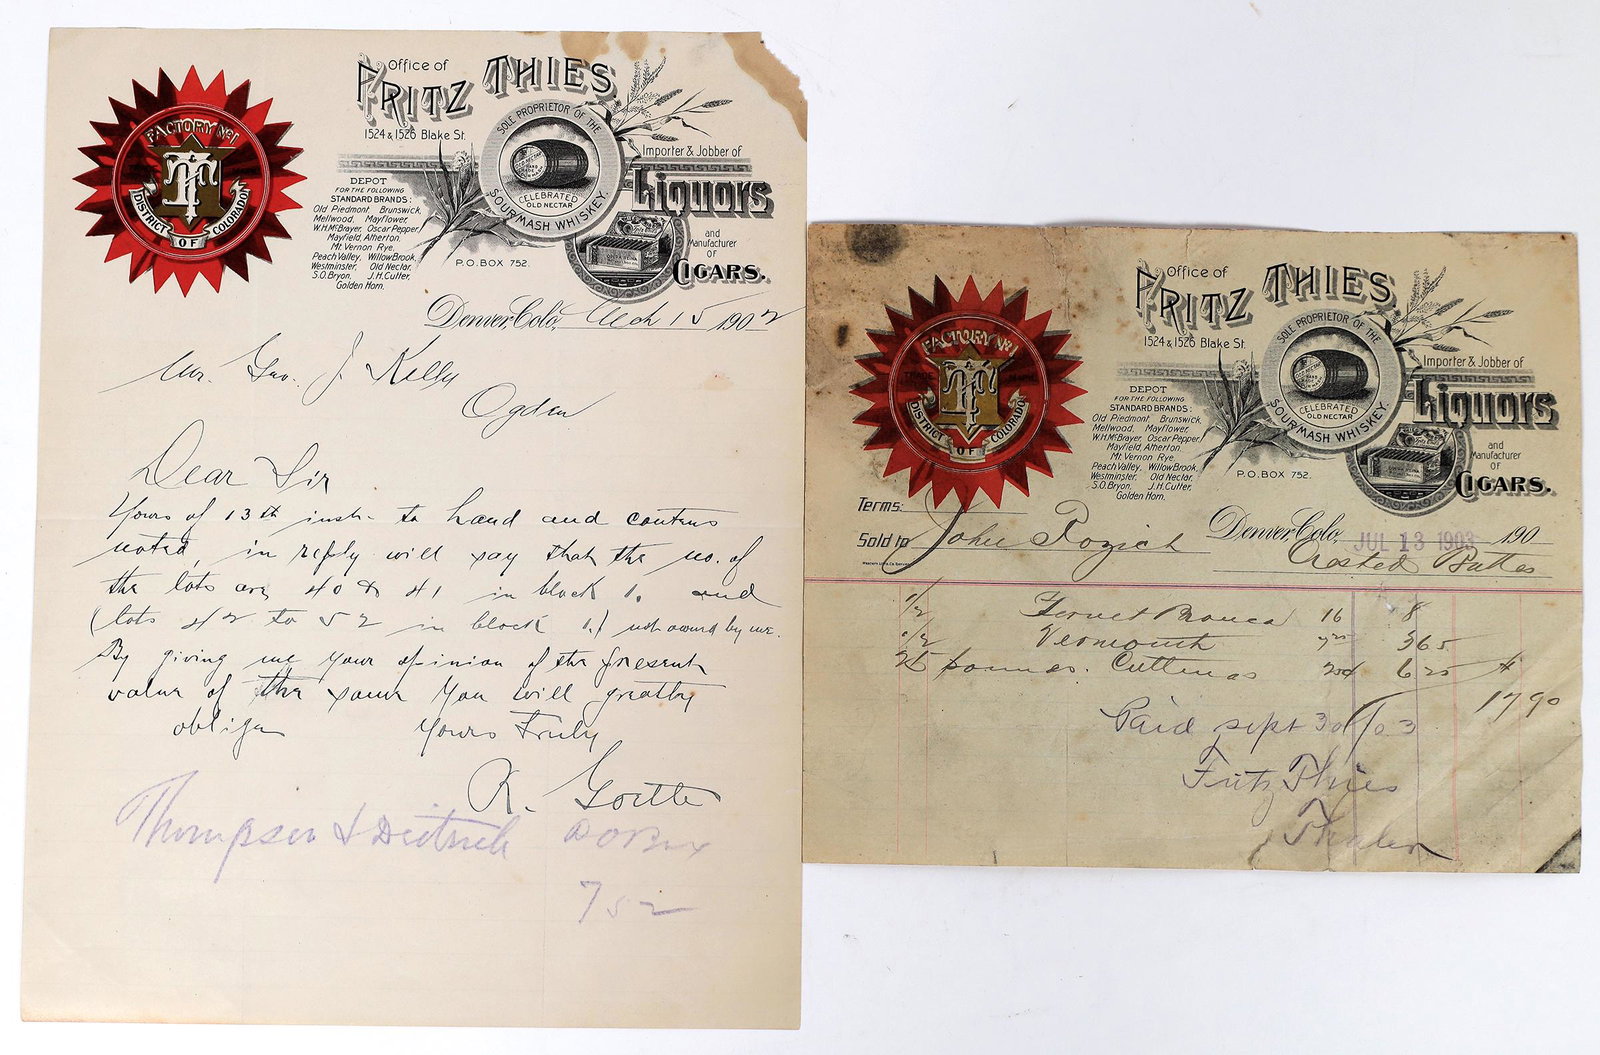 FACTORY Nº1
TF
DISTRICT OF COLORADO
Office of
FRITZ THIES.
1524 & 1526 Blake St.
SOLE PROPRIETOR OF THE
CELEBRATED
OLD NECTAR
SOUR MASH WHISKEY.
Importer & Jobber of
Liquors
and
Manufacturer
OF
CIGARS.
DEPOT
FOR THE FOLLOWING
STANDARD BRANDS:
Old Piedmont, Brunswick,
Mellwood, Mayflower,
W.H.McBrayer, Oscar Pepper,
Mayfield, Atherton,
Mt. Vernon Rye,
Peach Valley, Willow Brook,
Westminster, Old Nectar,
S.O.Bryon, J.H.Cutter,
Golden Horn.
P.O. BOX 752.
Denver, Colo, Mch 15 1902
Mr. Geo. J. Kelly
Ogden
Dear Sir
Yours of 13th inst. to hand and contens
noted, in reply will say that the no. of
the lots are 40 & 41 in block 1. and
(lots 42 to 52 in block 1.) not owned by me.
By giving me your opinion of the present
value of the same you will greatly
oblige Yours Truly
R. Goettle
Thompson & Dietrich P O Box
752
FACTORY Nº1
TRADE MARK
TF
DISTRICT OF COLORADO
Office of
FRITZ THIES.
1524 & 1526 Blake St.
SOLE PROPRIETOR OF THE
CELEBRATED
OLD NECTAR
SOUR MASH WHISKEY.
Importer & Jobber of
Liquors
and
Manufacturer
OF
CIGARS.
DEPOT
FOR THE FOLLOWING
STANDARD BRANDS:
Old Piedmont, Brunswick,
Mellwood, Mayflower,
W.H.McBrayer, Oscar Pepper,
Mayfield, Atherton,
Mt. Vernon Rye,
Peach Valley, Willow Brook,
Westminster, Old Nectar,
S.O.Bryon, J.H.Cutter,
Golden Horn.
P.O. BOX 752.
Terms:
Denver, Colo, JUL 13 1903 190
Sold to John Rozich Crested Buttes
1/2 Fernet Branca 16 8
1/2 Vermouth 365
25 pounds Cuttings 25¢ 6 25 #
17 90
Paid sept 30/03
Fritz Thies